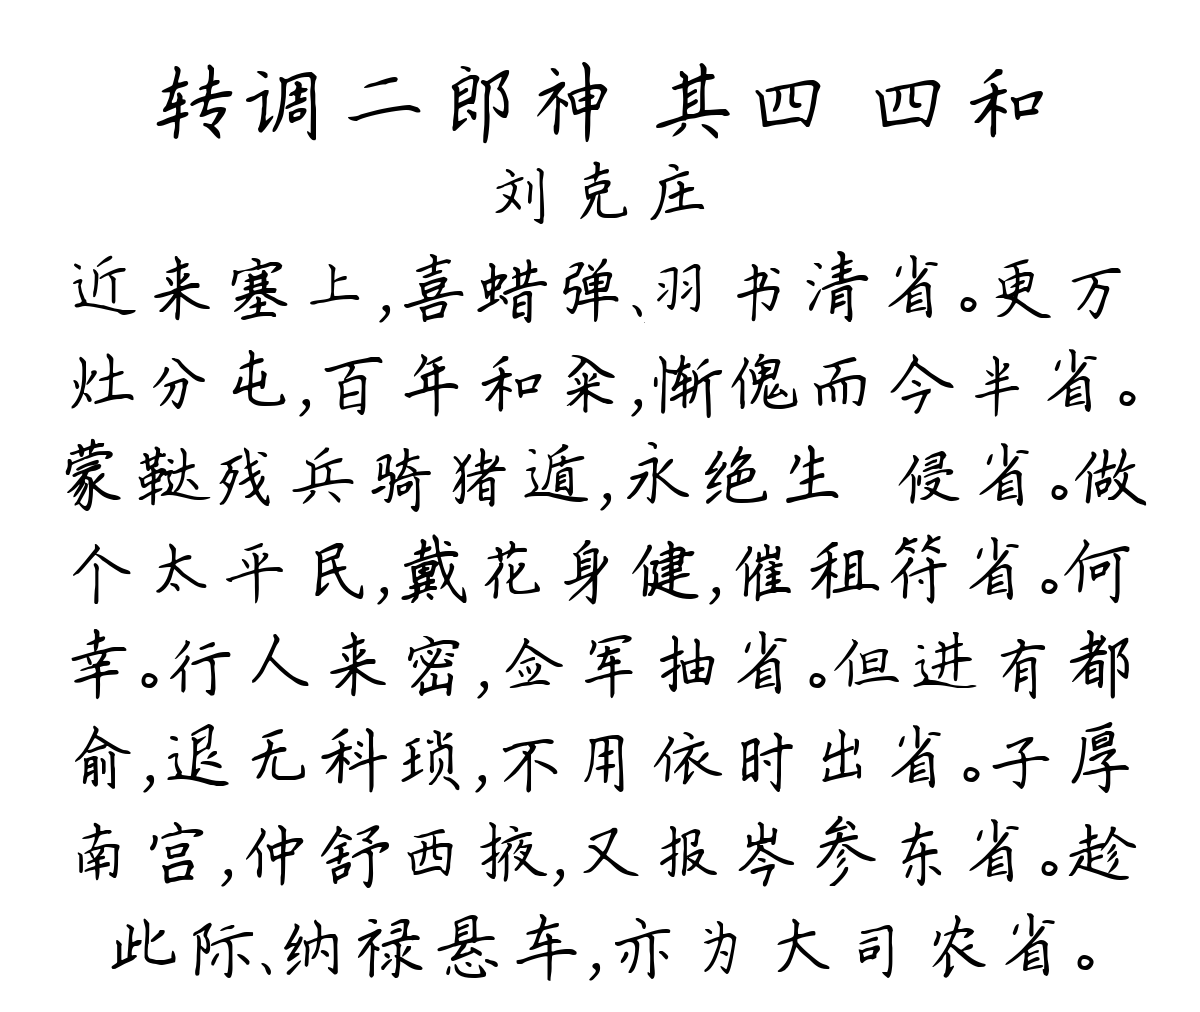 转调二郎神 其四 四和
刘克庄
近来塞上,喜蜡弹、羽书清省。更万
灶分屯,百年和籴,惭愧而今半省。
蒙鞑残兵骑猪遁,永绝生 侵省。做
个太平民,戴花身健,催租符省。何
幸。行人来密,佥军抽省。但进有都
俞,退无科琐,不用依时出省。子厚
南宫,仲舒西掖,又报岑参东省。趁
此际、纳禄悬车,亦为大司农省。